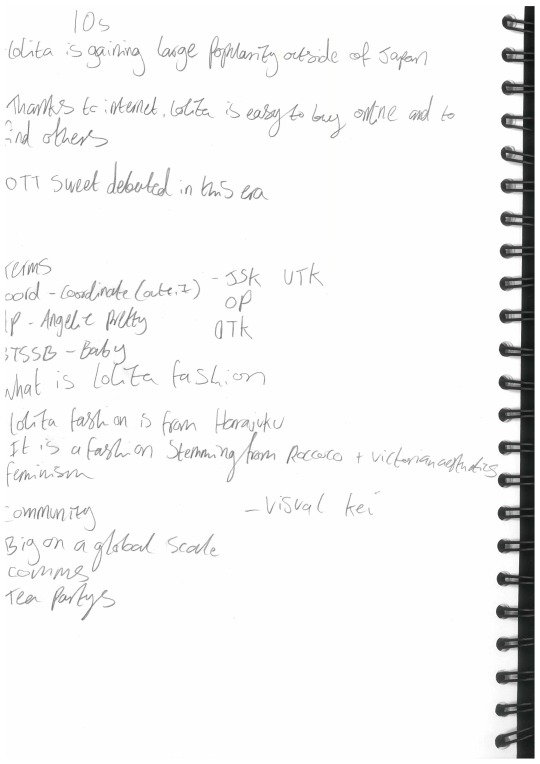 10s
Lolita is gaining large popularity outside of Japan
Thanks to internet, Lolita is easy to buy online and to
find others
OTT Sweet debuted in this era
Terms
oord - Coordinate (outfit) - JSK UTK
OP
AP - Angelic Pretty OTK
BTSSB - Baby
What is Lolita fashion
Lolita fashion is from Harajuku
It is a fashion Stemming from Roccoco + victorian aesthetics
feminism
Community - Visual kei
Big on a global Scale
comms
Tea Partys